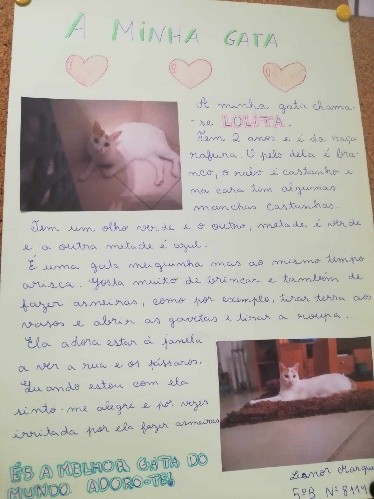 A MINHA GATA
A minha gata chama-
-se LOLITA.
Tem 2 anos e é da raça
rafeira. O pelo dela é bra-
nco, o rabo é castanho e
na cara tem algumas
manchas castanhas.
Tem um olho verde e o outro, metade é verde
e a outra metade é azul.
É uma gata meiguinha mas ao mesmo tempo
arisca. Gosta muito de brincar e também de
fazer asneiras, como por exemplo, tirar terra aos
vasos e abrir as gavetas e tirar a roupa.
Ela adora estar à janela
a ver a rua e os pássaros.
Quando estou com ela
sinto-me alegre e por vezes
irritada por ela fazer asneiras
ÉS A MELHOR GATA DO
MUNDO. ADORO-TE!
Leonor Marques
5ºB Nº 8119